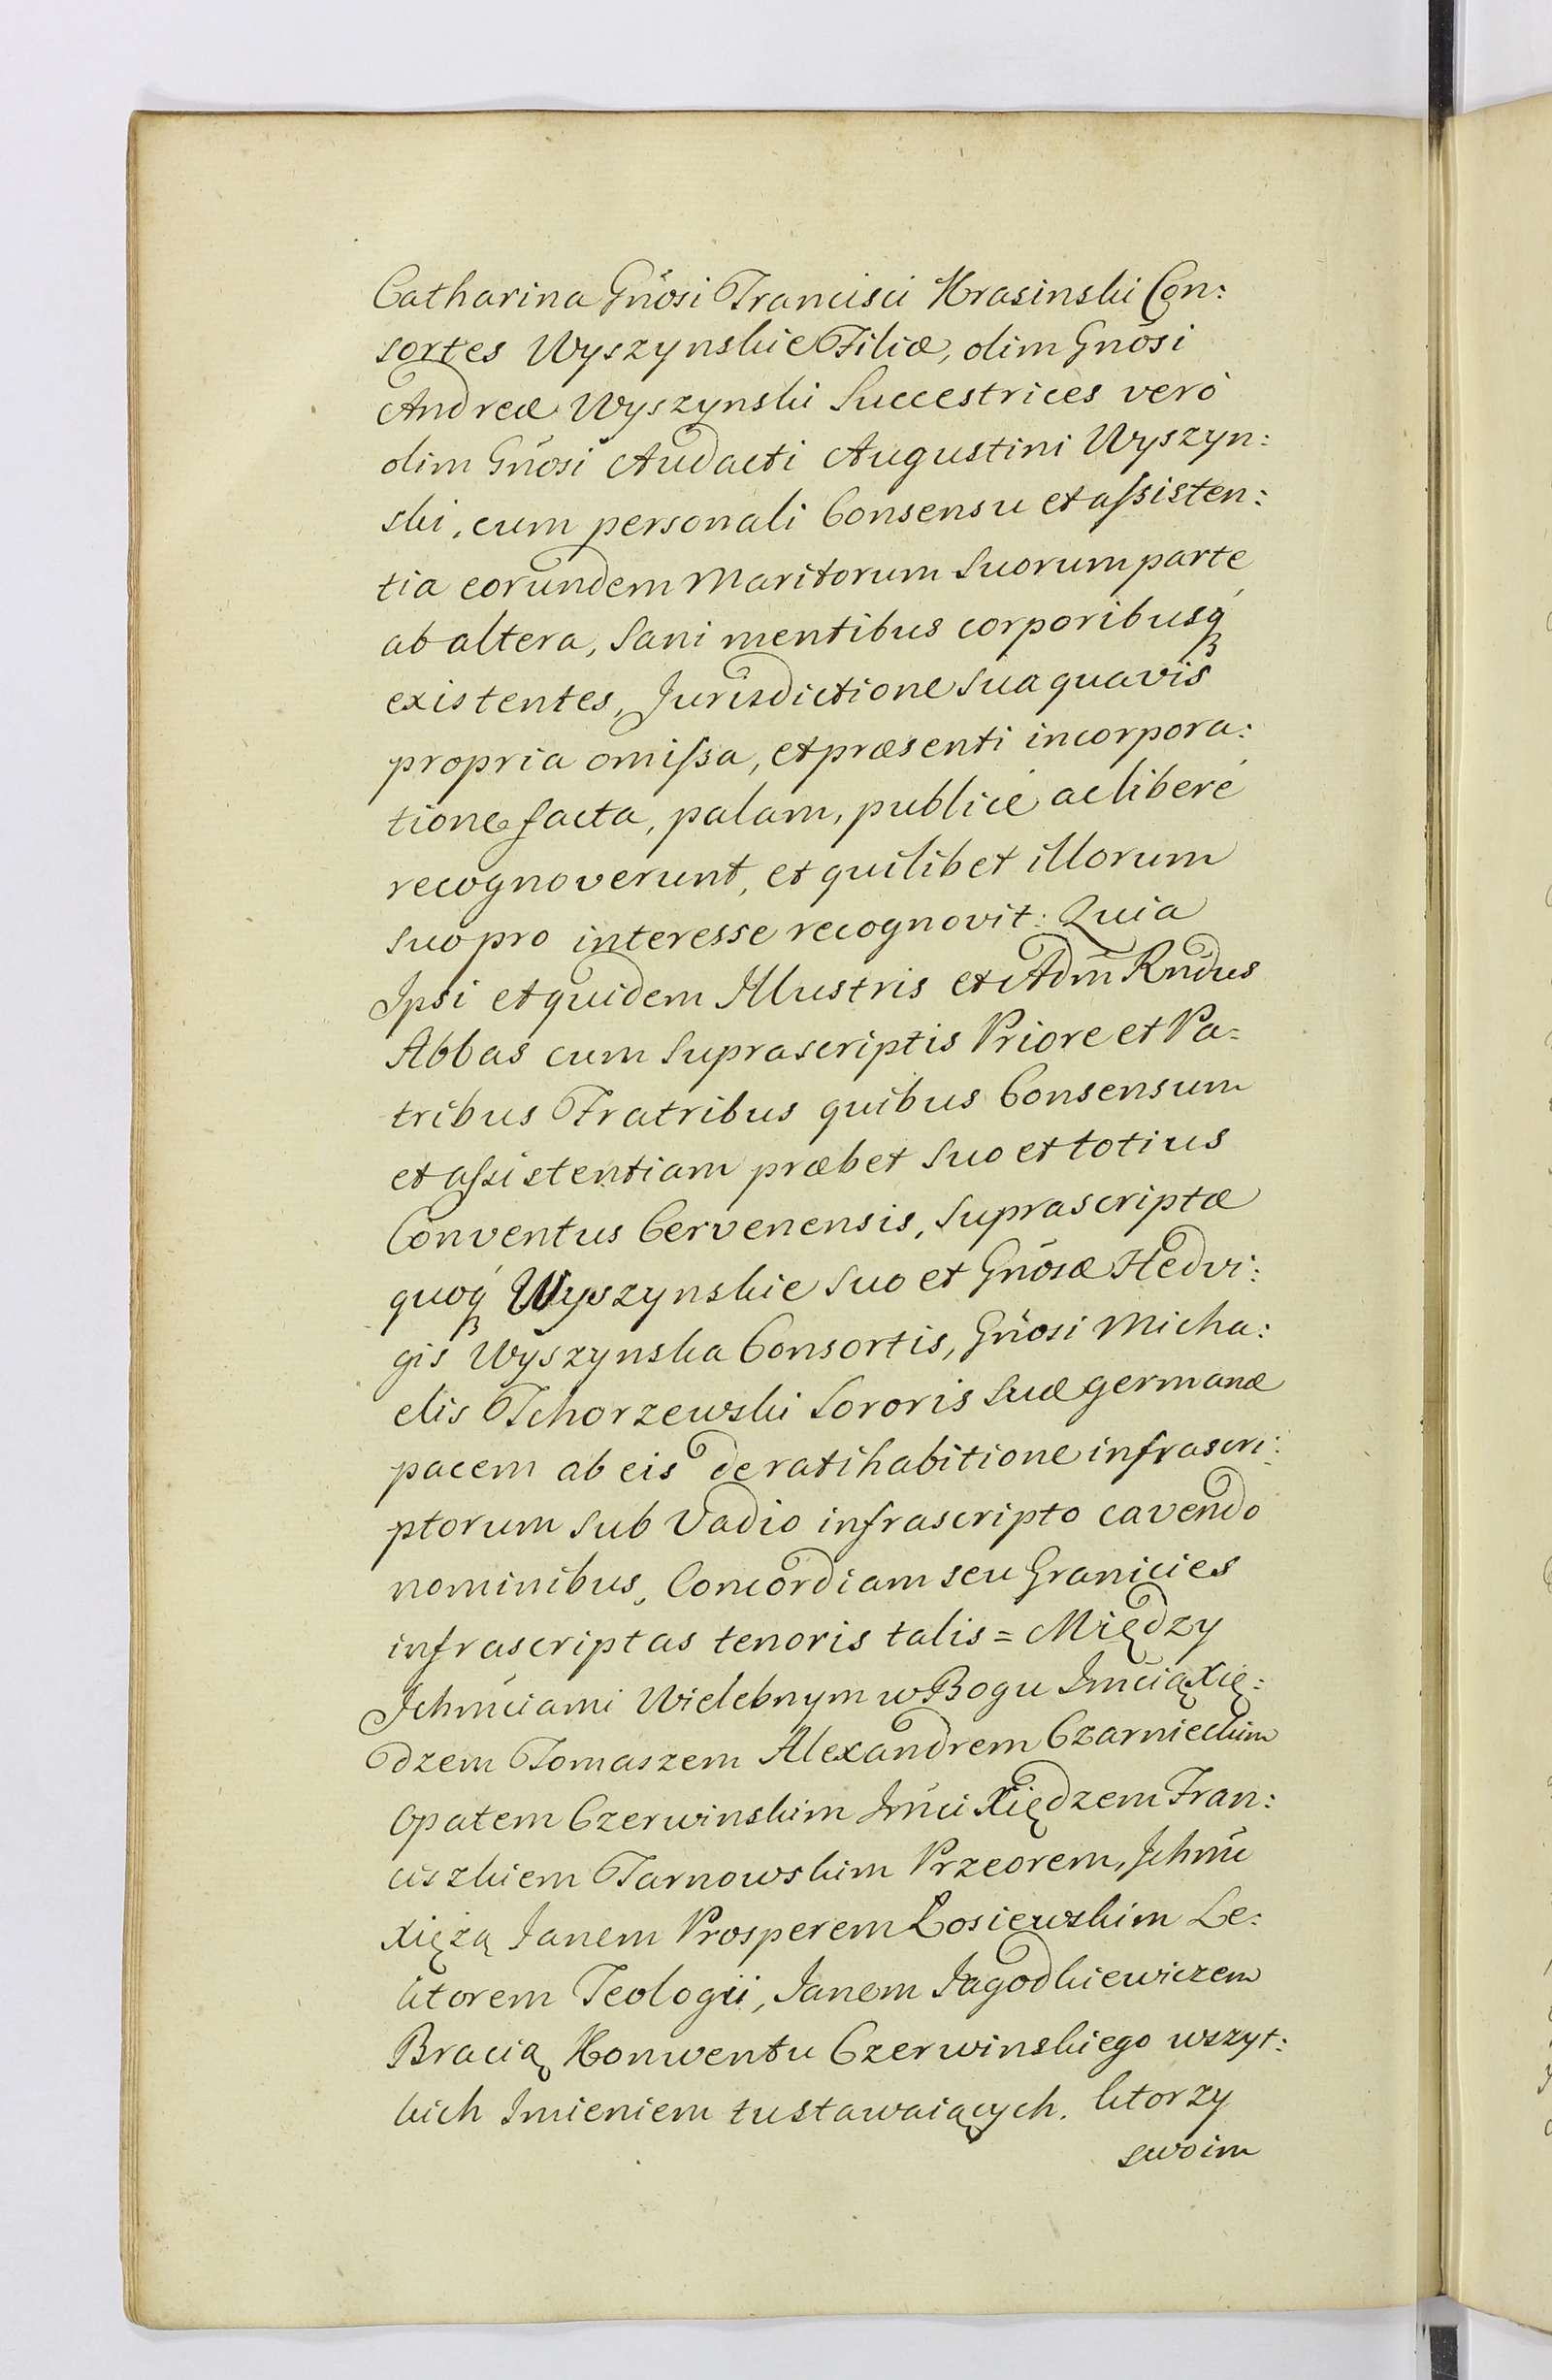 Catharina Gñosi Francisci Krasinski Con:
sortes Wyszynskie Filiæ, olim Gnõsi
Andreæ Wyszynski Succestrices verò
olim Gñosi Audacti Augustini Wyszyn:
ski, cum personali Consensu et aſsisten:
tia eorundem Maritorum Suorum parte
ab altera, Sani mentibus corporibusq́ꝫ
existentes, Jurisdictione Sua quavis
propria omiſsa, et præsenti incorpora:
tione facta, palam, publicé ac liberé
recognoverunt, et quilibet illorum
suo pro interesse recognovit: Quia
Ipsi et quidem Illustris et Adm̃ Rñdus
Abbas cum Suprascriptis Priore et Pa=
tribus Fratribus quibus Consensum
et aſsistentiam præbet Suo et totius
Conventus Cervenensis, Suprascriptæ
quoq́ꝫ Wyszynskie Suo et Gnõsæ Hedvi:
gis Wyszynska Consortis, Gñosi Micha:
elis Tchorzewski Sororis Suæ germanæ
pacem ab eis de ratihabitione infrascri:
ptorum Sub Vadio infrascripto cavendo
nominibus, Concordiam seu Granicies
infrascriptas tenoris talis = Między
Ichmciami Wielebnym w Bogu Imcią Xię:
dzem Tomaszem Alexandrem Czarnieckim
Opatem Czerwinskim Imci Xiędzem Fran:
ciszkiem Tarnowskim Przeorem, Ichmć
Xiężą Janem Prosperem Łosiewskim Le:
ktorem Teologii, Janem Jagodkiewiczem
Bracią Konwentu Czerwinskiego wszyt:
kich Imieniem tu stawaiących. którzy
swoim